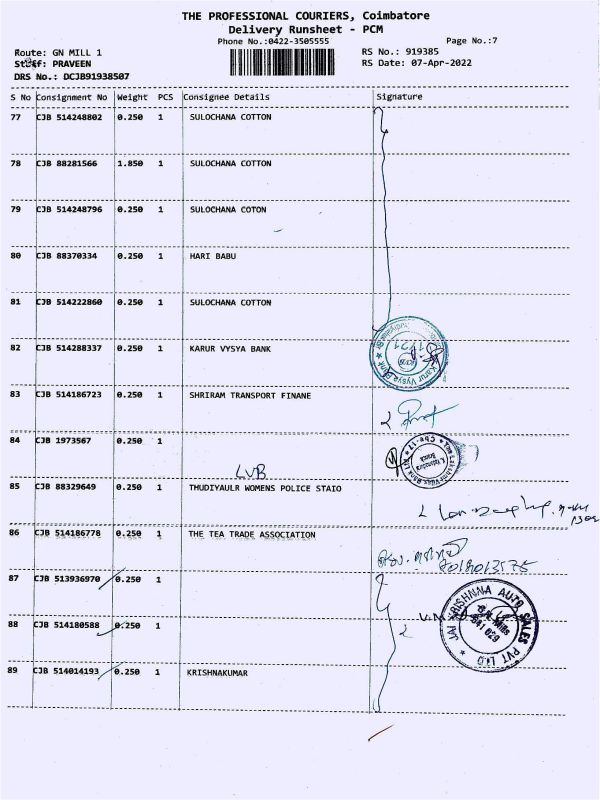 THE PROFESSIONAL COURIERS, Coimbatore
Delivery Runsheet - PCM
Phone No.:0422-3505555 Page No.:7
Route: GN MILL 1 RS No.: 919385
Staff: PRAVEEN RS Date: 07-Apr-2022
DRS No.: DCJB91938507
S No Consignment No Weight PCS Consignee Details Signature
77 CJB 514248802 0.250 1 SULOCHANA COTTON
78 CJB 88281566 1.850 1 SULOCHANA COTTON
79 CJB 514248796 0.250 1 SULOCHANA COTON
80 CJB 88370334 0.250 1 HARI BABU
81 CJB 514222860 0.250 1 SULOCHANA COTTON
82 CJB 514288337 0.250 1 KARUR VYSYA BANK
Karur Vysya Bank
83 CJB 514186723 0.250 1 SHRIRAM TRANSPORT FINANE
84 CJB 1973567 0.250 1
LVB
85 CJB 88329649 0.250 1 THUDIYAULR WOMENS POLICE STAIO
86 CJB 514186778 0.250 1 THE TEA TRADE ASSOCIATION
87 CJB 513936970 0.250 1
88 CJB 514180588 0.250 1
JAI KRISHNNA AUTO SALES PVT LTD
641 029
89 CJB 514014193 0.250 1 KRISHNAKUMAR